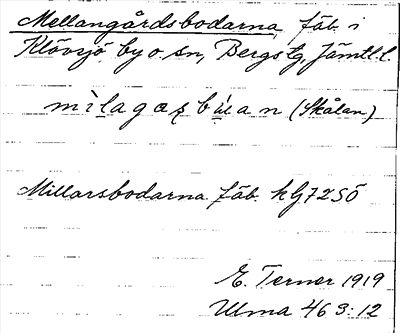 Mellangårdsbodarna fäb. i
Klövsjö by o. sn, Bergs tg, Jämtl. l.
(Skålan)
Millarsbodarna fäb. kG72SÖ
E. Terner 1919
Ulma 463:12